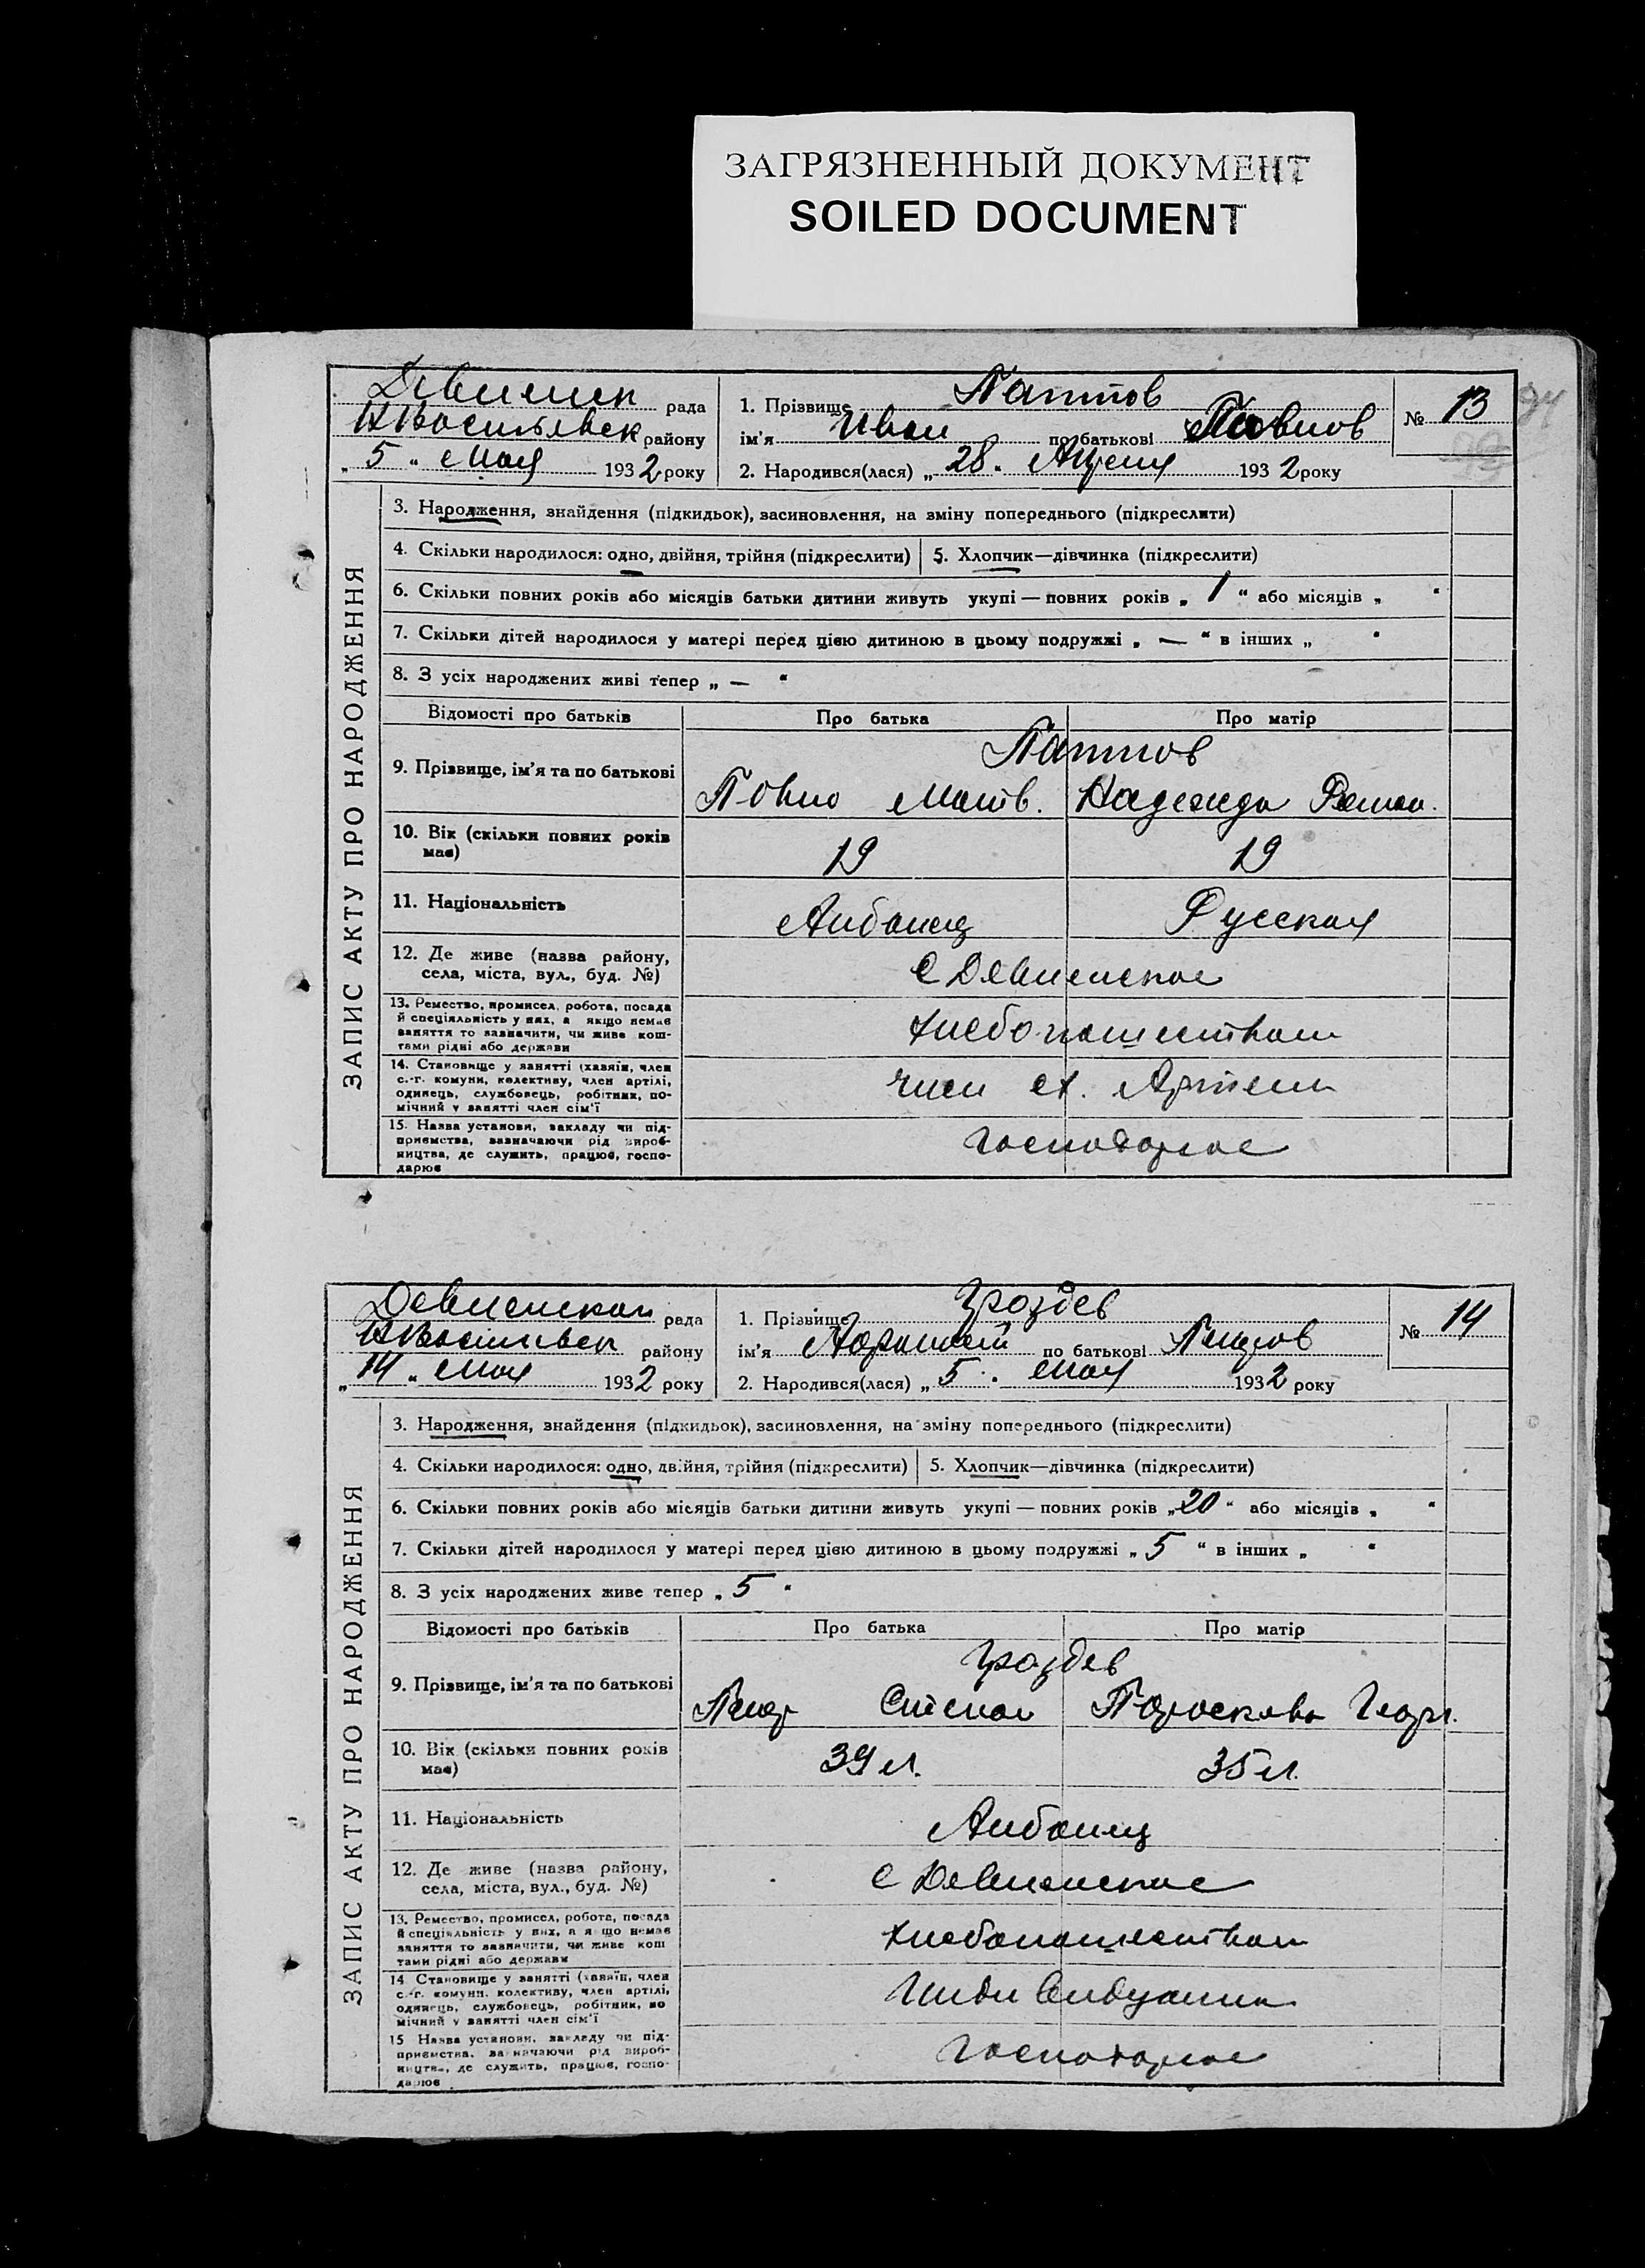 ЗАГРЯЗНЕННЫЙ ДОКУМЕНТ
SOILED DOCUMENT
рада
району
„ 5 “ Мая 1932 року
1. Прізвище
ім'я Иван по батькові Павлов
2. Народився(лася) „ 28 “ Апреля 1932 року
№ 13
94
ЗАПИС АКТУ ПРО НАРОДЖЕННЯ
3. Народження, знайдення (підкидьок), засиновлення, на зміну попереднього (підкреслити)
4. Скільки народилося: одно, двійня, трійня (підкреслити) 5. Хлопчик—дівчинка (підкреслити)
6. Скільки повних років або місяців батьки дитини живуть укупі — повних років „ 1 “ або місяців „ “
7. Скільки дітей народилося у матері перед цією дитиною в цьому подружжі „ — “ в інших „ “
8. З усіх народжених живі тепер „ — “
Відомості про батьків Про батька Про матір
9. Прізвище, ім'я та по батькові
Матв. Надежда
10. Вік (скільки повних років має) 19 19
11. Національність Албанец Русская
12. Де живе (назва району, села, міста, вул., буд. №) С Девненское
13. Ремество, промисел, робота, посада й спеціяльність у них, а якщо немає заняття то зазначити, чи живе коштами рідні або держави
хлебопашеством
14. Становище у занятті (хазяїн, член с.-г. комуни, колективу, член артілі, одинець, службовець, робітник, помічний у занятті член сім'ї
член сх. Артели
15. Назва установи, закладу чи підприємства, зазначаючи рід виробництва, де служить, працює, господарює
Господарює
Девненская рада
району
„ 14 “ Мая 1932 року
1. Прізвище Гроздев
ім'я по батькові Петров
2. Народився(лася) „ 5 “ Мая 1932 року
№ 14
ЗАПИС АКТУ ПРО НАРОДЖЕННЯ
3. Народження, знайдення (підкидьок), засиновлення, на зміну попереднього (підкреслити)
4. Скільки народилося: одно, двійня, трійня (підкреслити) 5. Хлопчик—дівчинка (підкреслити)
6. Скільки повних років або місяців батьки дитини живуть укупі — повних років „ 20 “ або місяців „ “
7. Скільки дітей народилося у матері перед цією дитиною в цьому подружжі „ 5 “ в інших „ “
8. З усіх народжених живе тепер „ 5 “
Відомості про батьків Про батька Про матір
Гроздев
9. Прізвище, ім'я та по батькові Петр Степан Параскева Георг.
10. Вік (скільки повних років має) 39 л. 35 л.
11. Національність Албанец
12. Де живе (назва району, села, міста, вул., буд. №) С Девненское
13. Ремество, промисел, робота, посада й спеціяльність у них, а якщо немає заняття то зазначити, чи живе коштами рідні або держави
хлебопашеством
14. Становище у занятті (хазяїн, член с.-г. комуни, колективу, член артілі, одинець, службовець, робітник, помічний у занятті член сім'ї
15. Назва установи, закладу чи підприємства, зазначаючи рід виробництва, де служить, працює, господарює
Господарює